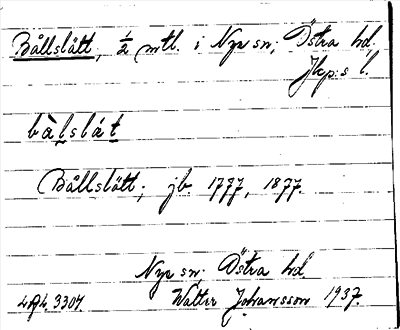 Bållslätt, 1/2 mtl. i Nye sn; Östra hd,
Jkp:s l.
bålslát
Bållslätt, jb. 1777, 1877.
Nye sn. Östra hd.
Walter Johansson 1937.